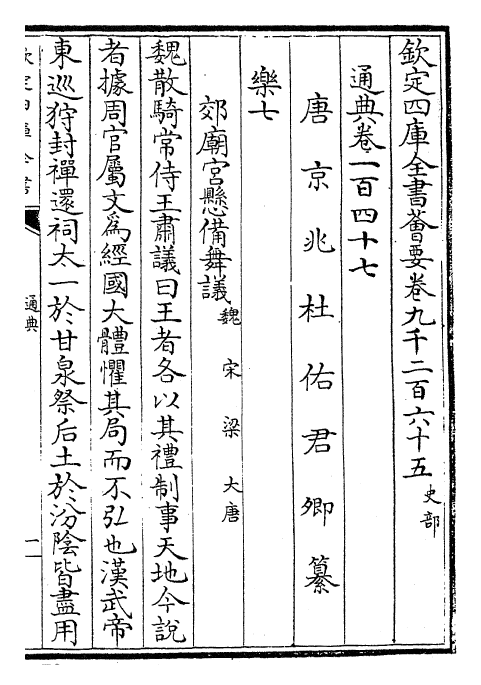 欽定四庫全書薈要卷九千二百六十五 史部
通典卷一百四十七
唐京兆杜佑君卿纂
樂七
郊廟宮懸備舞議 魏 宋 梁 大唐
魏散騎常侍王肅議曰王者各以其禮制事天地今說
者據周官屬文為經國大體懼其局而不弘也漢武帝
東巡狩封禪還祠太一於甘泉祭后土於汾陰皆盡用
通典
一